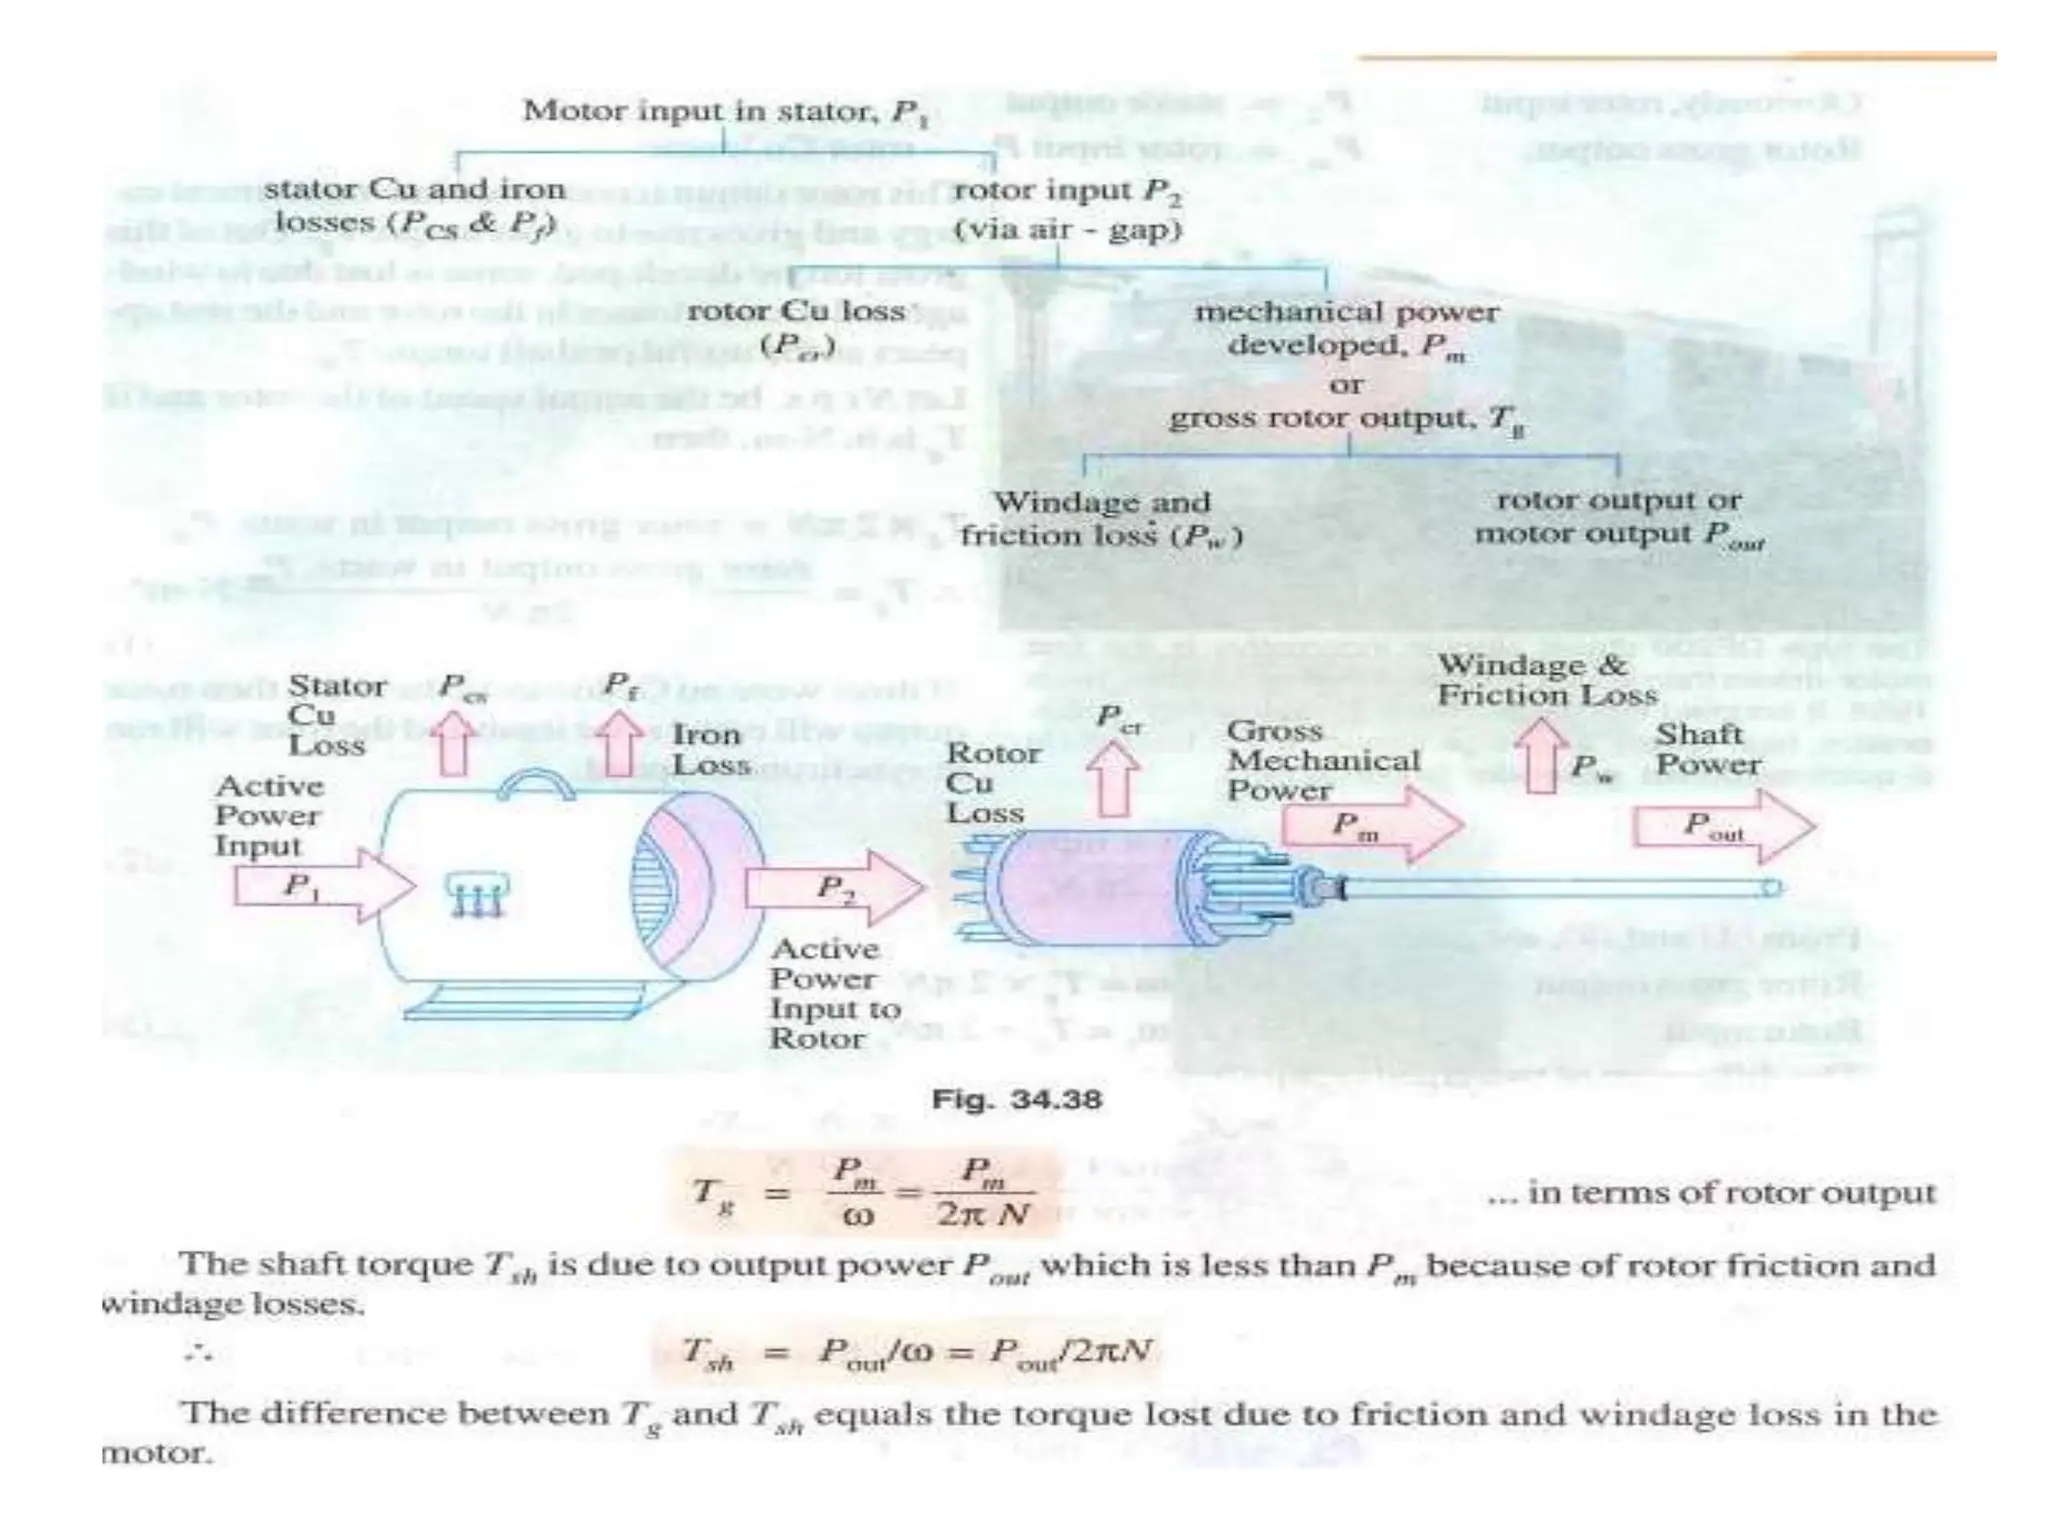 Motor input in stator, P1
stator Cu and iron
losses (PCS & Pf)
rotor input P2
(via air - gap)
rotor Cu loss
(Pcr)
mechanical power
developed, Pm
or
gross rotor output, Tg
Windage and
friction loss (Pw)
rotor output or
motor output Pout
Stator
Cu
Loss
Pcs
Pf
Iron
Loss
Active
Power
Input
P1
P2
Active
Power
Input to
Rotor
Rotor
Cu
Loss
Pcr
Gross
Mechanical
Power
Pm
Windage &
Friction Loss
Pw
Shaft
Power
Pout
Fig. 34.38
Tg = Pm/ω = Pm/2π N ... in terms of rotor output
The shaft torque Tsh is due to output power Pout which is less than Pm because of rotor friction and
windage losses.
∴ Tsh = Pout/ω = Pout/2πN
The difference between Tg and Tsh equals the torque lost due to friction and windage loss in the
motor.